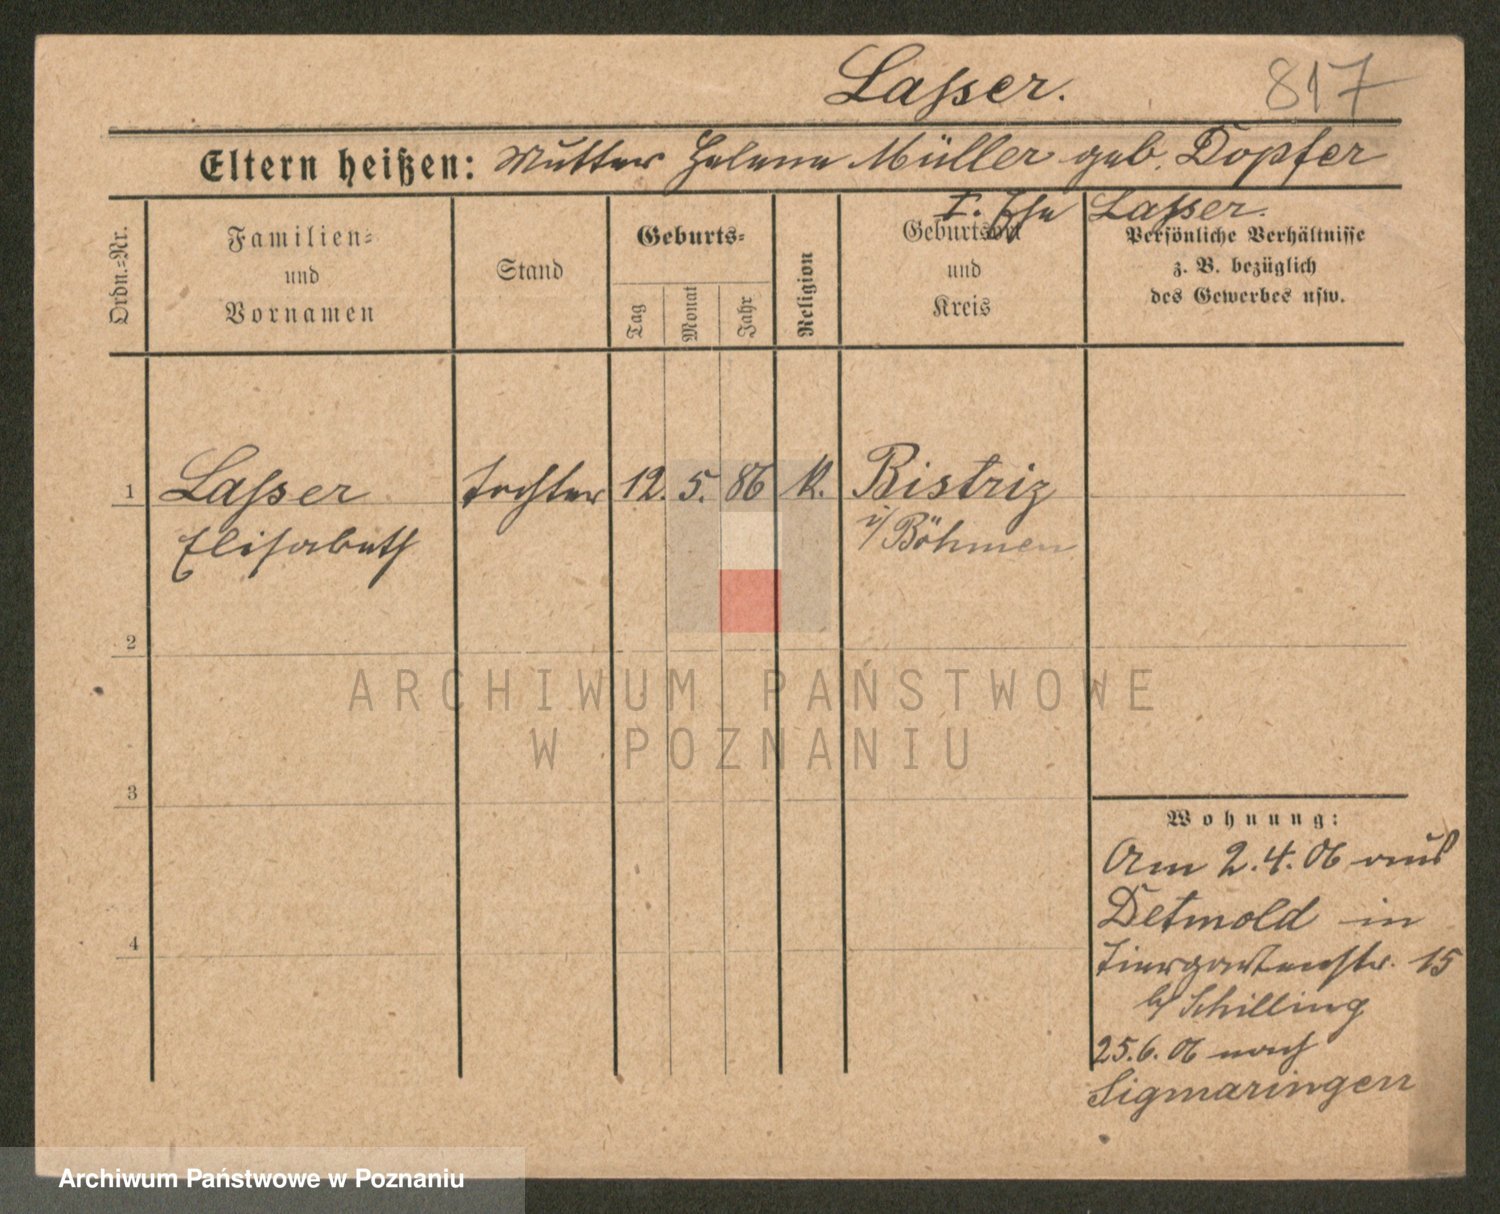 Lasser.
817
Eltern heißen: Mutter Helene Müller geb. Dopfer
I. Ehe Lasser.
Ordn.-Nr.
Familien-
und
Vornamen
Stand
Geburts-
Tag
Monat
Jahr
Religion
Geburtsort
und
Kreis
Persönliche Verhältnisse
z. B. bezüglich
des Gewerbes usw.
1 Lasser Tochter 12. 5. 86 k. Bistriz
Elisabeth i/Böhmen
2
3
4
Wohnung:
Am 2.4.06 aus
Detmold in
Tiergartenstr. 15
b/ Schilling
25.6.06 nach
Sigmaringen
ARCHIWUM PAŃSTWOWE
W POZNANIU
Archiwum Państwowe w Poznaniu